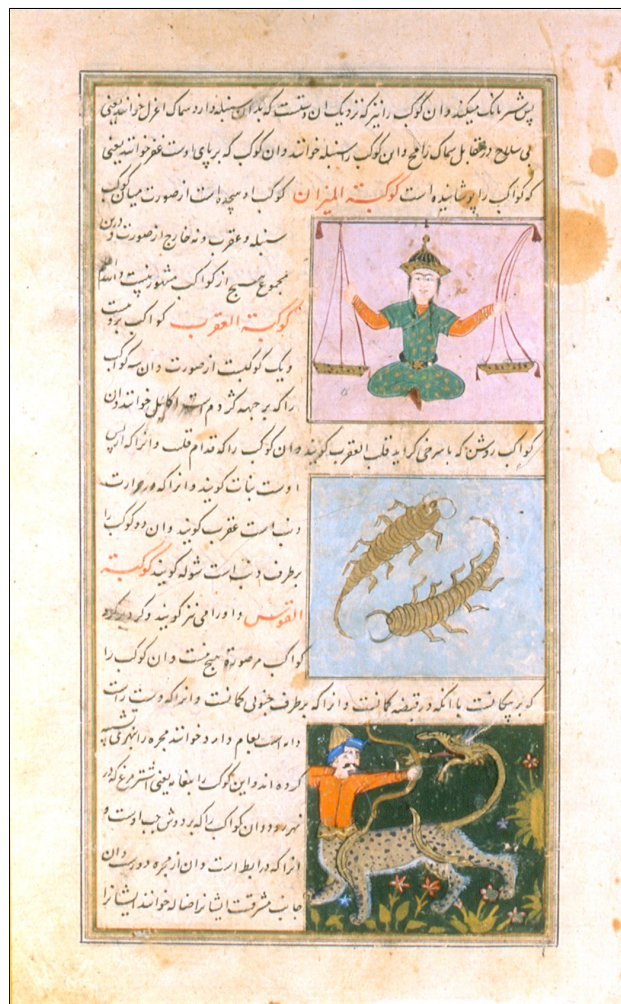 پس شیر بانک میکند وان کوکب را نیز که نزدیک ان دستست که بدان سنبله دارد سماک اعزل خوانند یعنی
بی سلاح در مقابل سماک رامح وان کوکب را سنبله خوانند وان کوکب که بر پای اوست غفر خوانند یعنی
که کواکب را پوشانیده است کوکبة المیزان کوکب او هجده است از صورت میان کوکب
سنبله و عقرب و نه خارج از صورت و درین
مجموع هیچ از کواکب مشهور نیست والله اعلم
کوکبة العقرب کواکب بر
و یک کوکبست از صورت وان سه کوکب
را که بر جبهه کژدم است اکلیل خوانند وان
کواکب روشن که با سرخی کراید قلب العقرب کویند وان کوکب را که قدام قلب وانرا که از پس
اوست نیات کویند وانرا که در حرارت
ذنب است عقرب کویند وان دو کوکب را
بر طرف ذنب است شوله کویند کوکبة
القوس و او را رامی نیز کویند و کرد بر کرد
کواکب مرصورة هیچ نیست وان کوکب را
که بر پیکانست با انکه در قبضه کمانست وانرا که بر طرف جنوبی کمانست وانرا که دست راست
دابه است نعام وارد خوانند مجره را بنهر تشبیه
کرده اند و این کوکب را بنعامه یعنی شترمرغ که در
نهر رود وان کواکب را که بر دوش چپ اوست و
انرا که در ابط است وان از مجره دورست دران
جانب مشرقست ایشانرا نعام صادر خوانند ایشانرا